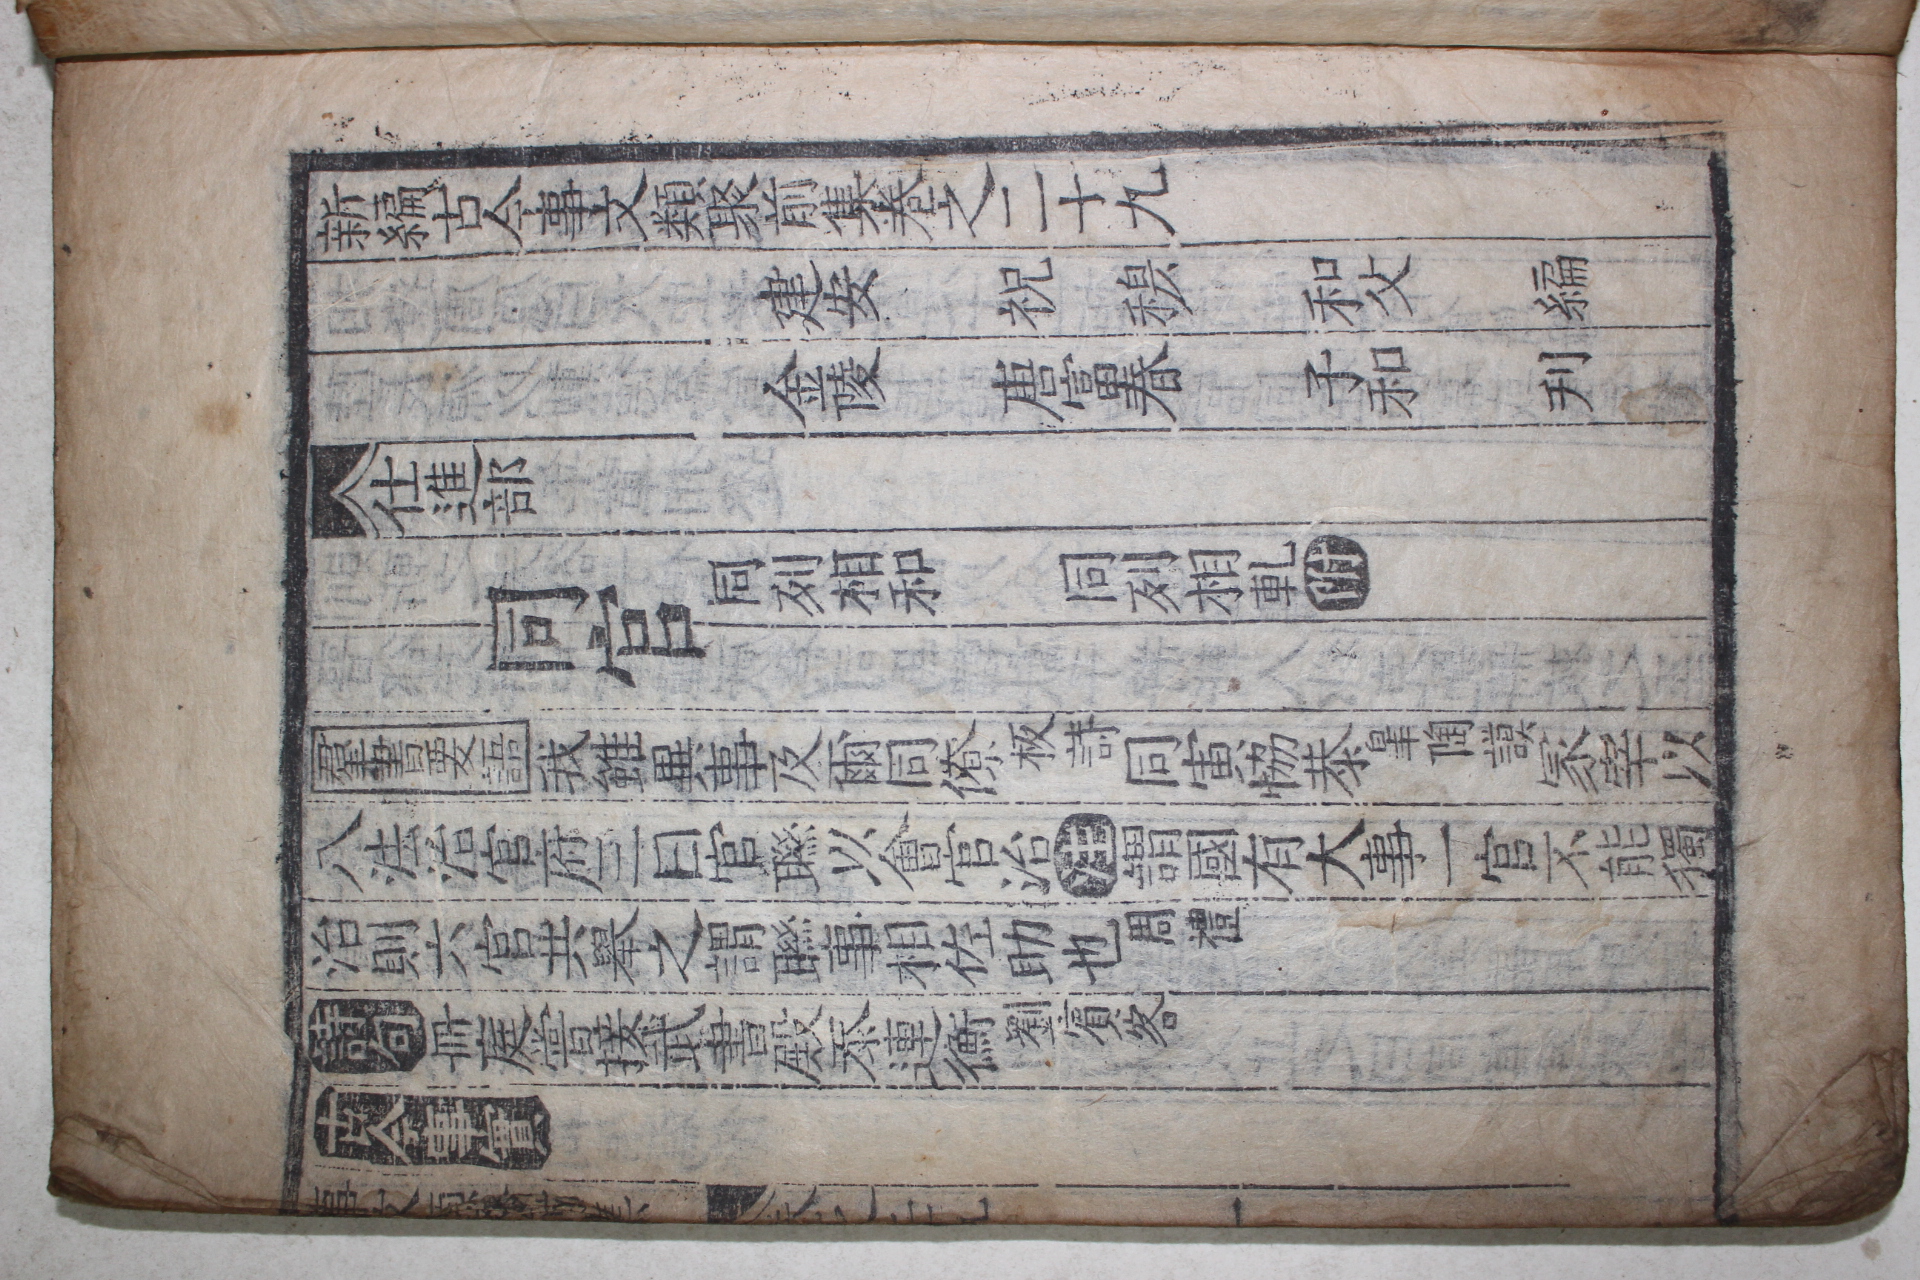 新編古今事文類聚前集卷之二十九
建安 祝 穆 和父 編
金陵 唐富春 子和 刋
仕進部
同列相和 同列相軋附
同官
羣書要語我雖異事及爾同僚板詩同寅協恭皐陶謨冢宰以
八法治官府三曰官聯以會官治注謂國有大事一官不能獨
治則六官共舉之謂聯事相佐助也周禮
詩句冊庭甞接武書殿忝連衡劉賓客
古今事實
卷之二十九 一